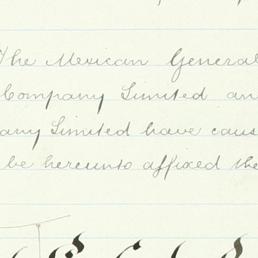 The Mexican General
Company Limited an
any Limited have caus
be hereunto affixed the